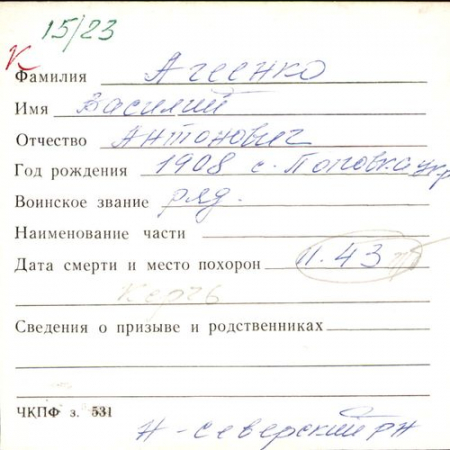 15/23
К
Фамилия Агеенко
Имя Василий
Отчество Антонович
Год рождения 1908 с. Поповка укр
Воинское звание ряд.
Наименование части
Дата смерти и место похорон 11.43
Керчь
Сведения о призыве и родственниках
ЧКПФ з. 531
Н-северский рн